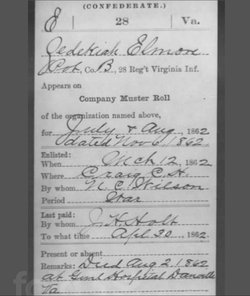 (CONFEDERATE.)
E 28 Va.
Zedekiah Elmon
Pvt., Co. B, 28 Reg't Virginia Inf.
Appears on
Company Muster Roll
of the organization named above,
for July & Aug, 1862
dated Nov 6, 1862.
Enlisted:
When Mch 12, 1862
Where Craig C.H.
By whom N.C. Wilson
Period War
Last paid:
By whom J.H. Holt
To what time Apl 30, 1862
Present or absent
Remarks: Died Aug 2, 1862
at Genl Hospital Danville
Va